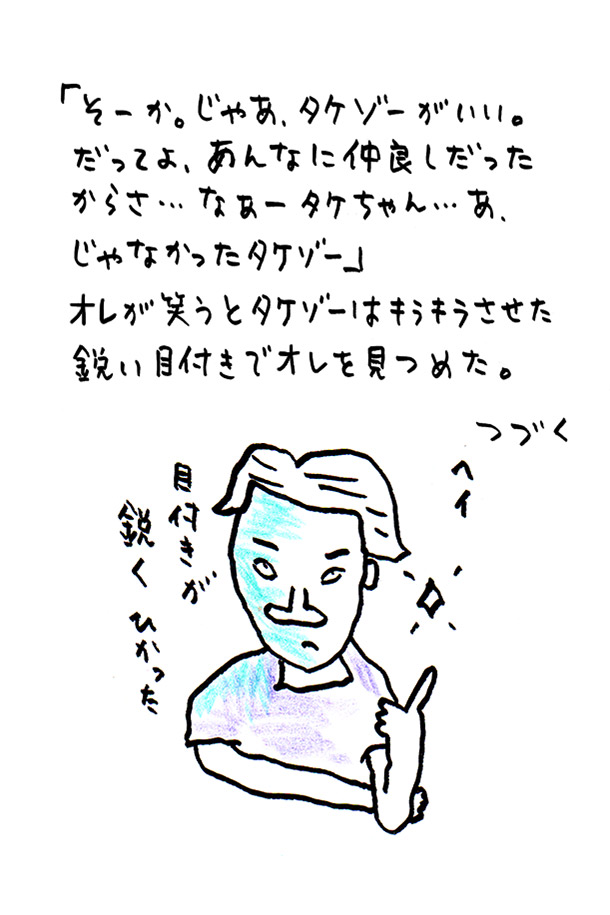 「そーか。じゃあ、タケゾーがいい。
だってよ、あんなに仲良しだった
からさ…なぁータケちゃん…あ、
じゃなかったタケゾー」
オレが笑うとタケゾーはキラキラさせた
鋭い目付きでオレを見つめた。
つづく
ヘイ
目付きが
鋭くひかった